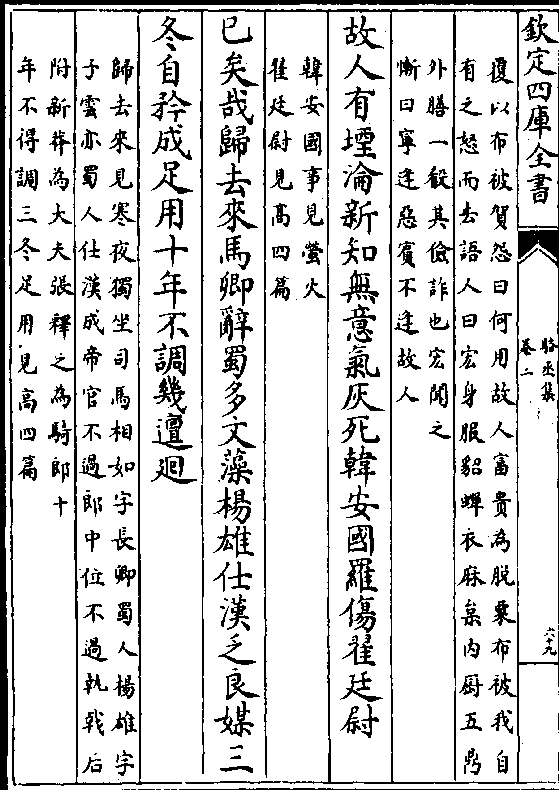 欽定四庫全書
駱丞集
卷二
六十九
覆以布被賀怨曰何用故人富貴為脫粟布被我自
有之怒而去語人曰宏身服貂蟬衣麻枲内厨五鼎
外膳一殽其儉詐也宏聞之
慚曰寧逢惡賓不逢故人
故人有堙淪新知無意氣灰死韓安國羅傷翟廷尉
韓安國事見螢火
翟廷尉見髙四篇
已矣哉歸去來馬卿辭蜀多文藻楊雄仕漢乏良媒三
冬自矜成足用十年不調幾邅迴
歸去來見寒夜獨坐司馬相如字長卿蜀人楊雄字
子雲亦蜀人仕漢成帝官不過郎中位不過執戟后
附新莽為大夫張釋之為騎郎十
年不得調三冬足用見髙四篇